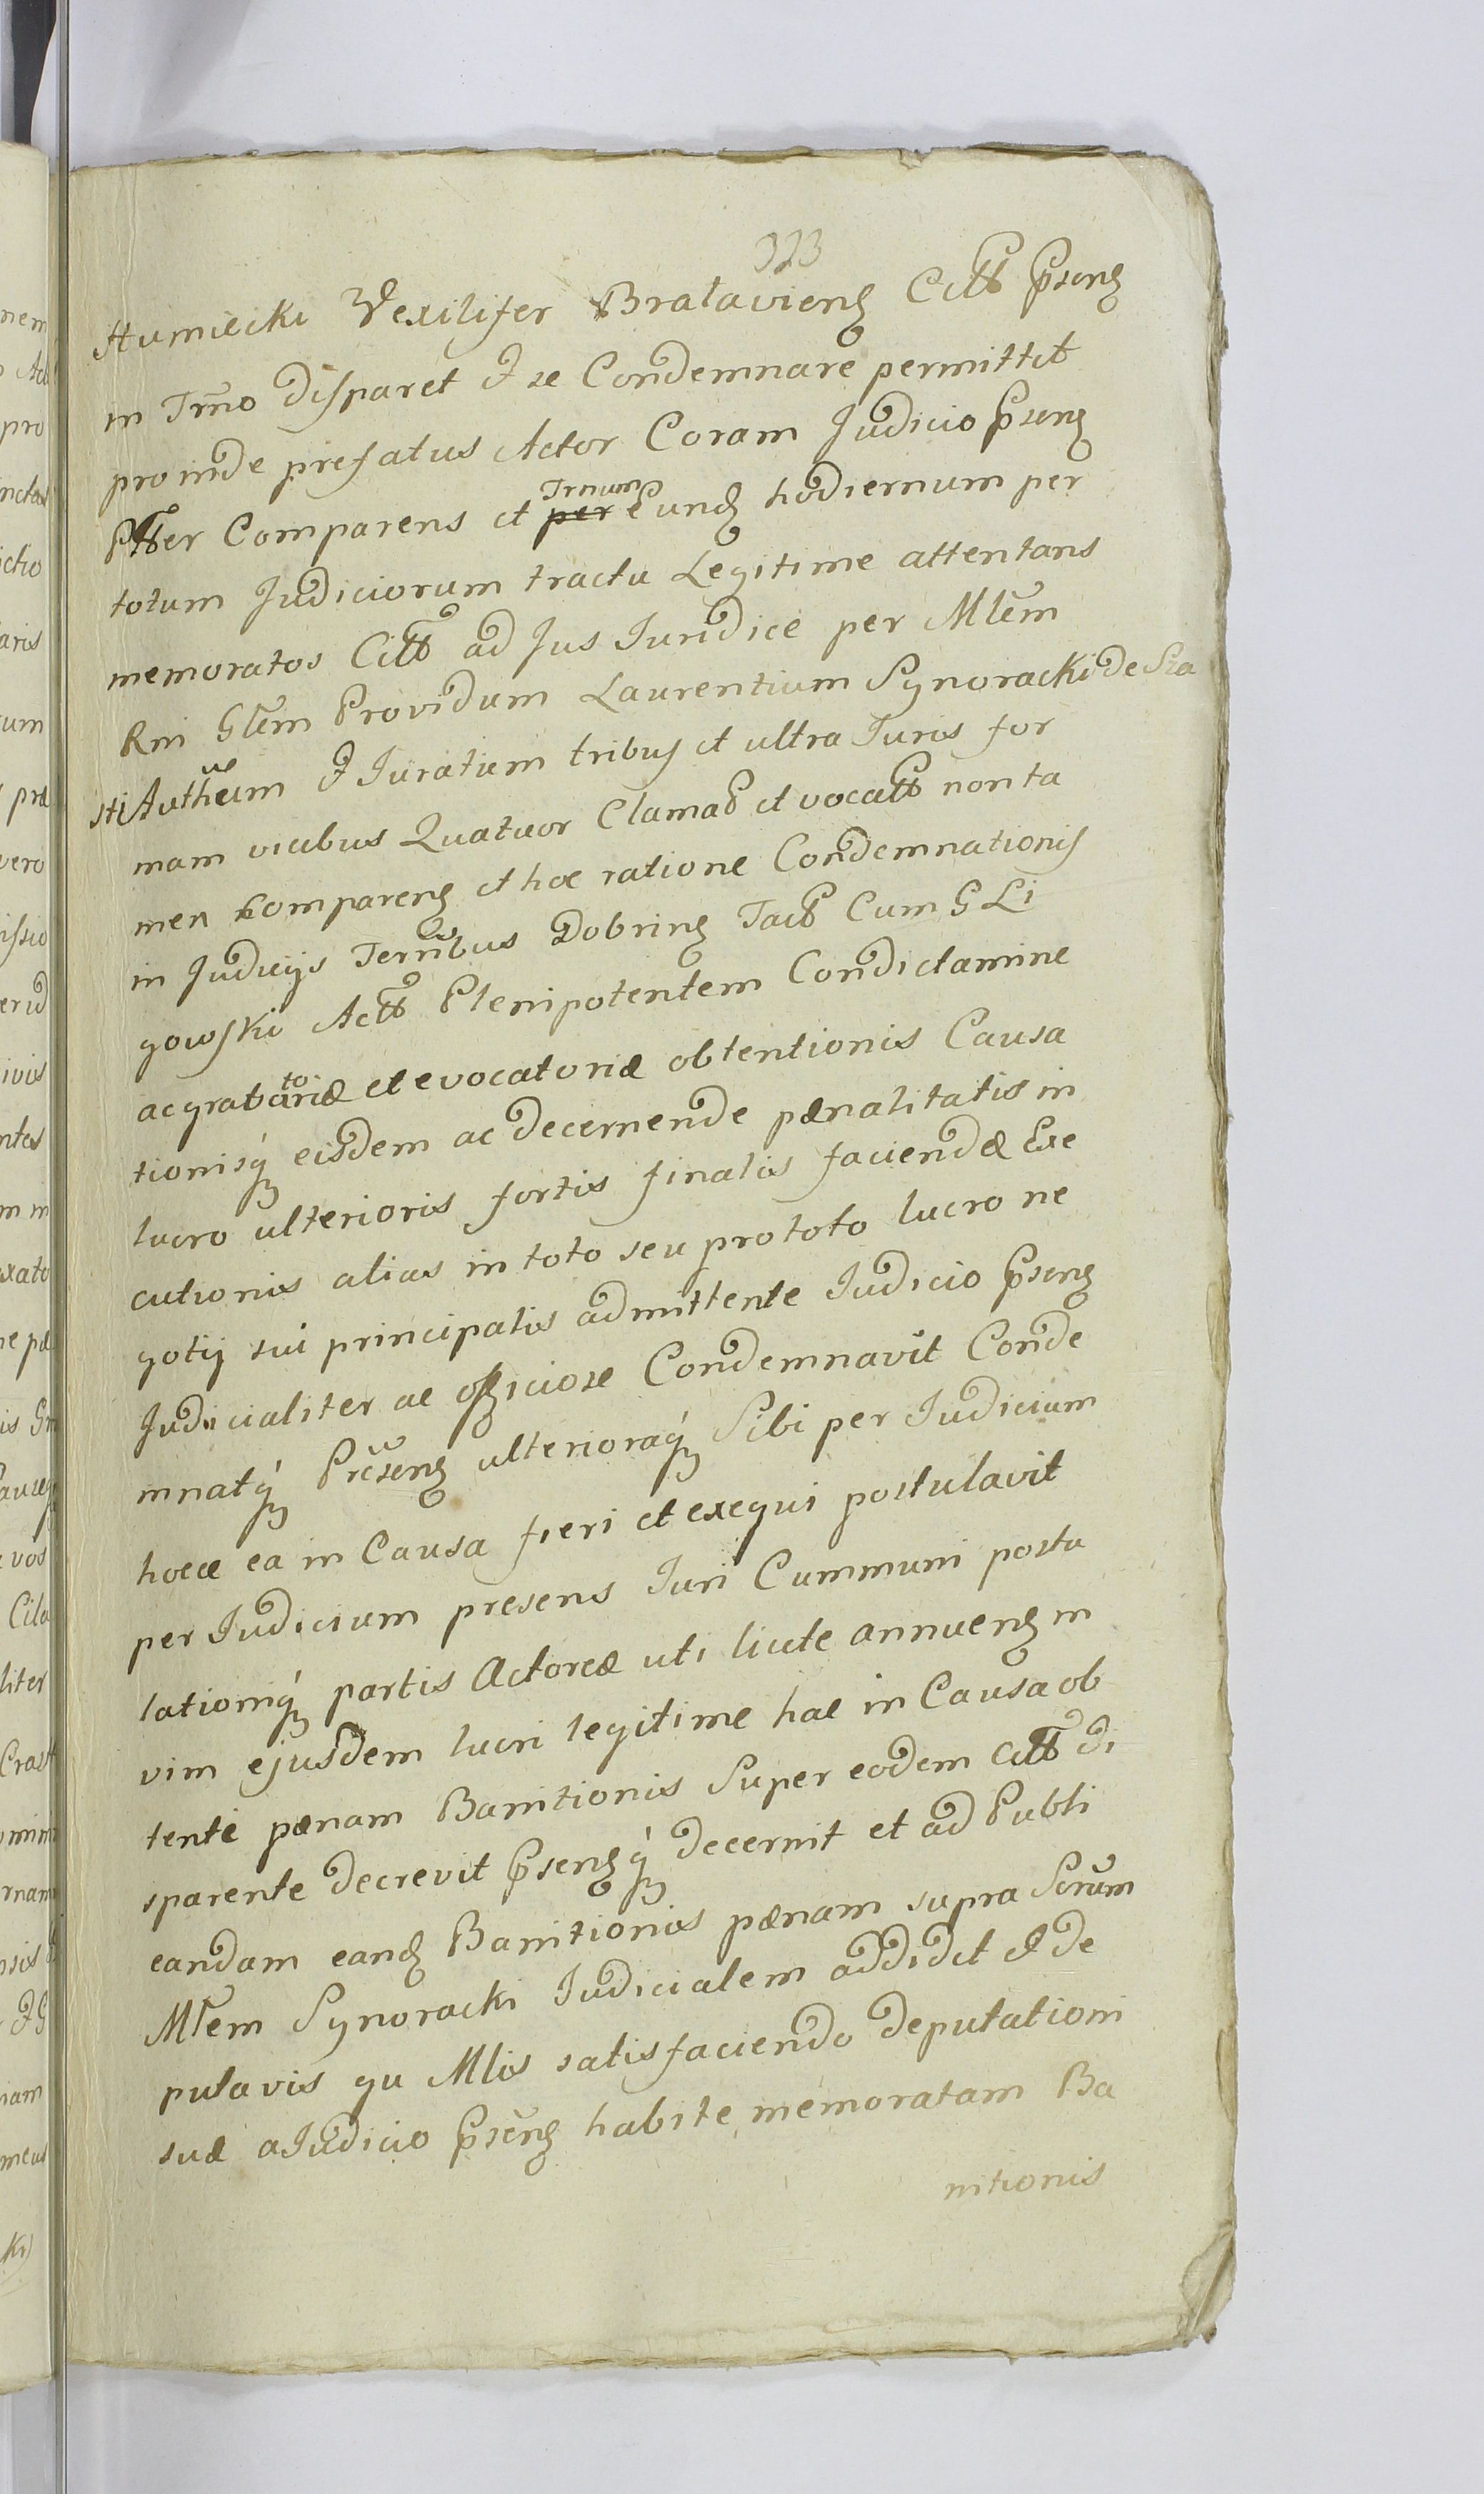 323
Humiecki Vexilifer Bratavien͠ Citt͠ p͠sen͠
in Tr͞mo disparet et se Condemnare permittit
proinde prefatus Actor Coram Judicio p͠sen͠
Ptt͠er Comparens et Trnum eund͠ hodiernum per
totum Judiciorum tractu Legitime attentans
memoratos Citt͠ ad Jus Juridice per Ml͠em
Rni Gl͠em Providum Laurentium Synoracki de Sza
sti Auth͠eum et Juratum tribus et ultra Juris for
mam vicibus Quatuor Clamat͠ et vocatt͠ non ta
men Comparen͠ et hoc ratione Condemnationis
in Judicijs Ter͠ribus Dobrin͠ Fact͠ Cum G Li
gowski Act͠ Plenipotentem Condictamine
acgratitoriæ et evocatoriæ obtentionis Causa
tionisq́ eisdem ac decernende pænalitatis in
lucro ulterioris fortis finalis faciendæ Exe
cutionis alias in toto seu pro toto lucro ne
gotij sui principalis admittente Judicio p͠sen͠
Judicialiter ac officiose Condemnavit Conde
mnatq́ Pr͠esen͠ ulterioraq́ Sibi per Judicium
hocce ea in Causa fieri et exequi postulavit
per Judicium presens Juri Cummuni postu
lationiq́ partis Actoreæ uti licite annuen͠ in
vim ejusdem lucri legitime hac in Causa ob
tente pænam Banitionis Super eodem Citt͠ di
sparente decrevit p͠sen͠q́ decernit et ad Publi
candam eand͠ Banitionis pænam supra Scr͠um
Ml͠em Synoracki Judicialem addidit et de
putavis qu Mlis satisfaciendo deputationi
suæ a Judicio p͠sen͠ habite memoratam Ba
nitionis